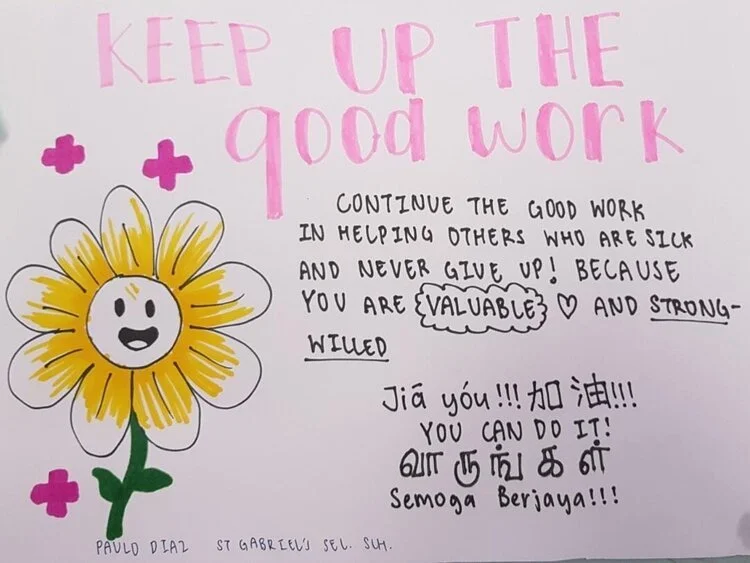 KEEP UP THE
good work
CONTINUE THE GOOD WORK
IN HELPING OTHERS WHO ARE SICK
AND NEVER GIVE UP! BECAUSE
YOU ARE VALUABLE ♡ AND STRONG-
WILLED
Jiā yóu!!! 加油!!!
YOU CAN DO IT!
வாருங்கள்
Semoga Berjaya!!!
PAULO DIAZ ST GABRIEL'S SEC. SCH.